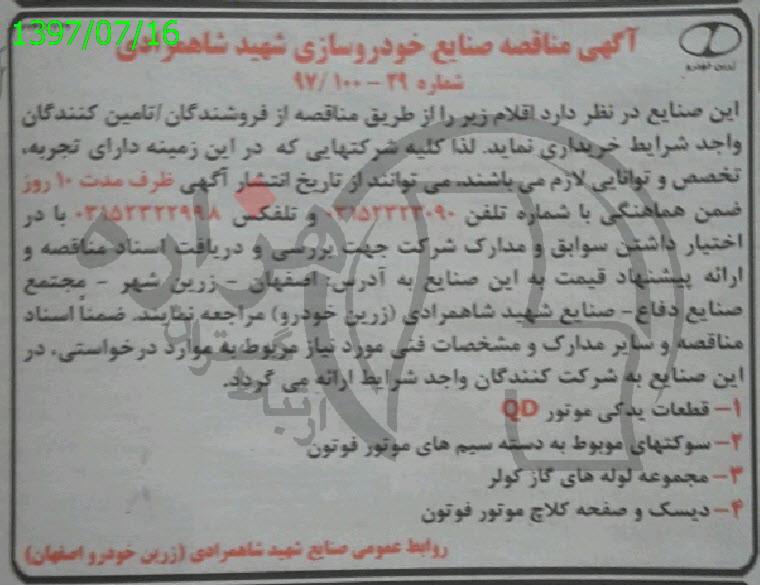 1397/07/16
آگهی مناقصه صنایع خودروسازی شهید شاهمرادی
زرین خودرو
شماره ۳۹ – ۱۰۰ /۹۷
این صنایع در نظر دارد اقلام زیر را از طریق مناقصه از فروشندگان/تامین کنندگان
واجد شرایط خریداری نماید. لذا کلیه شرکتهایی که در این زمینه دارای تجربه،
تخصص و توانایی لازم می باشند، می توانند از تاریخ انتشار آگهی ظرف مدت ۱۰ روز
ضمن هماهنگی با شماره تلفن ۰۳۱۵۲۲۲۳۰۹۰ و تلفکس ۰۳۱۵۲۳۲۲۹۹۸ با در
اختیار داشتن سوابق و مدارک شرکت جهت بررسی و دریافت اسناد مناقصه و
ارائه پیشنهاد قیمت به این صنایع به آدرس: اصفهان – زرین شهر – مجتمع
صنایع دفاع – صنایع شهید شاهمرادی (زرین خودرو) مراجعه نمایند. ضمناً اسناد
مناقصه و سایر مدارک و مشخصات فنی مورد نیاز مربوط به موارد درخواستی، در
این صنایع به شرکت کنندگان واجد شرایط ارائه می گردد.
۱– قطعات یدکی موتور QD
۲– سوکتهای موبوط به دسته سیم های موتور فوتون
۳– مجموعه لوله های گاز کولر
۴– دیسک و صفحه کلاچ موتور فوتون
روابط عمومی صنایع شهید شاهمرادی (زرین خودرو اصفهان)
هزاره